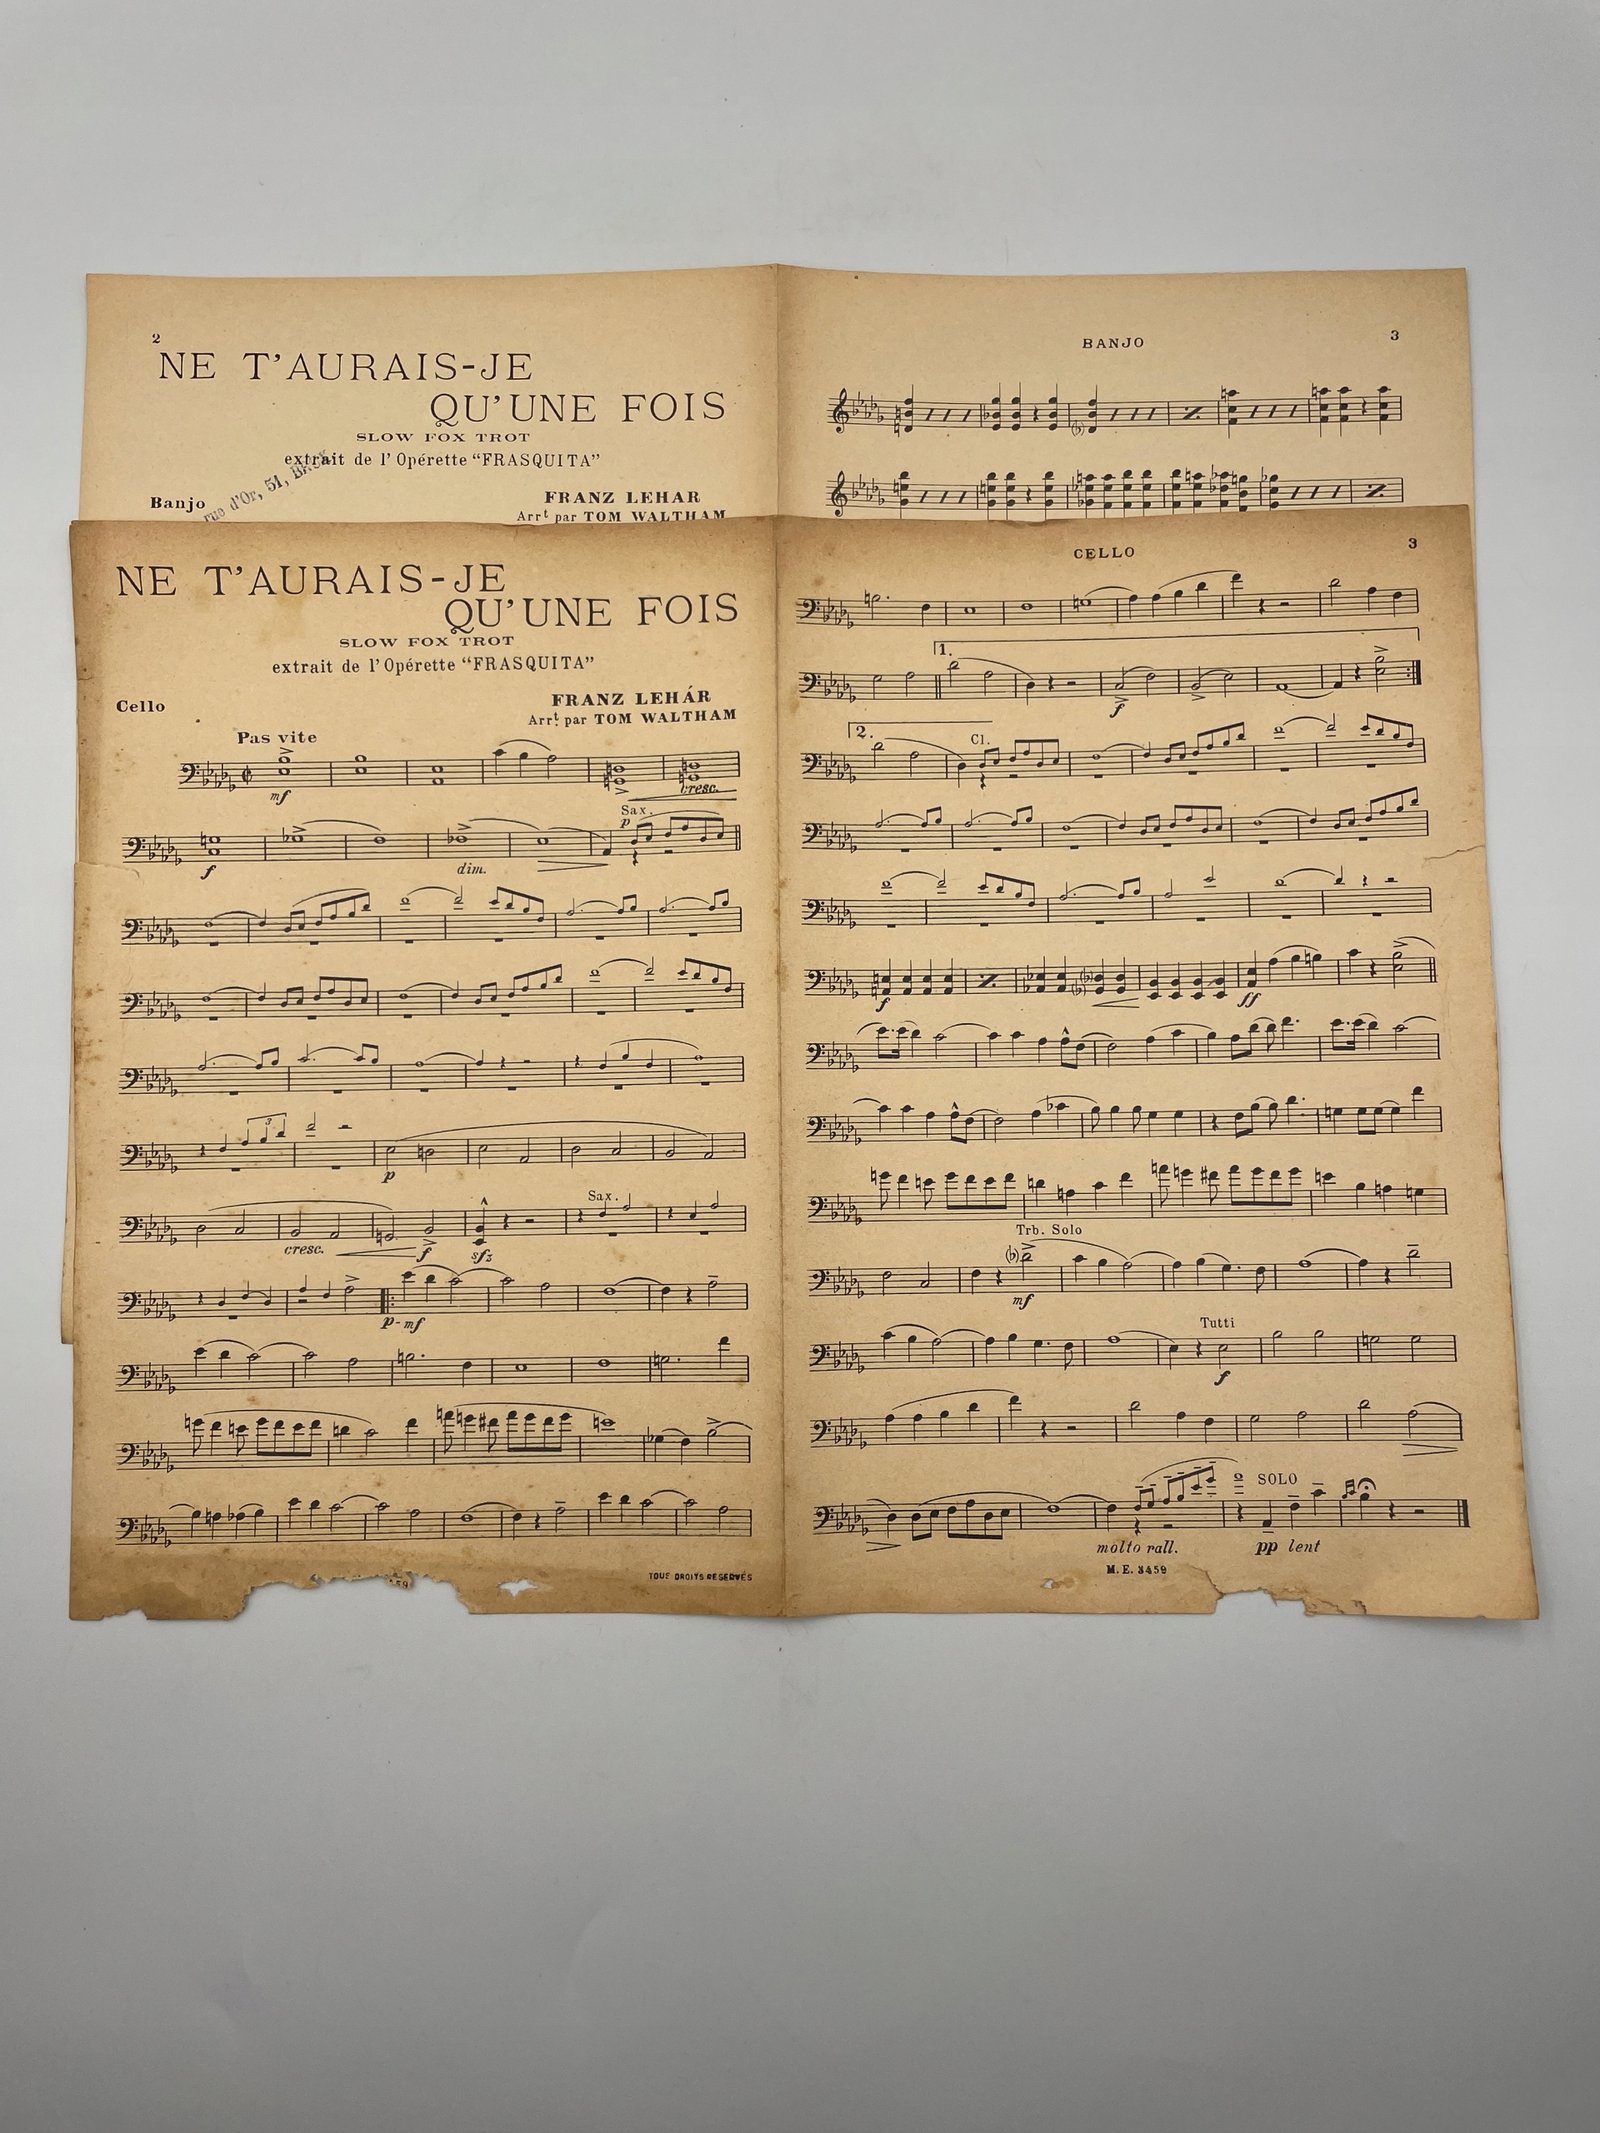 2
NE T'AURAIS-JE
QU'UNE FOIS
SLOW FOX TROT
extrait de l'Opérette “FRASQUITA”
rue d'Or, 51,
Banjo
FRANZ LEHAR
Arrt par TOM WALTHAM
BANJO
3
NE T'AURAIS-JE
QU'UNE FOIS
SLOW FOX TROT
extrait de l'Opérette “FRASQUITA”
Cello
FRANZ LEHÁR
Arrt. par TOM WALTHAM
Pas vite
mf
cresc.
Sax.
p
f
dim.
3
p
Sax.
cresc.
f
sfz
p-mf
TOUS DROITS RESERVÉS
CELLO
3
1.
f
2.
Cl.
f
ff
Trb. Solo
mf
Tutti
f
SOLO
molto rall.
pp lent
M. E. 3459